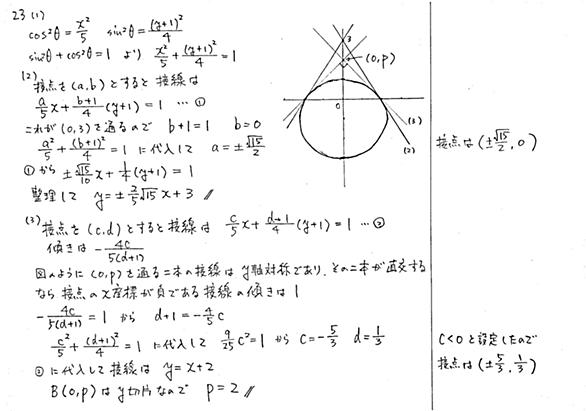 23 (1)
cos²θ = x²/5  sin²θ = (y+1)²/4
sin²θ + cos²θ = 1 より x²/5 + (y+1)²/4 = 1
(2)
接点を(a,b)とすると接線は
a/5 x + (b+1)/4 (y+1) = 1 … ①
これが(0,3)を通るので b+1=1  b=0
a²/5 + (b+1)²/4 = 1 に代入して a = ±√15/2
①から ±√15/10 x + 1/4 (y+1) = 1
整理して y = ± 2/5 √15 x + 3 //
(3)
接点を(c,d)とすると接線は c/5 x + (d+1)/4 (y+1) = 1 … ②
傾きは - 4c/5(d+1)
図のように(0,p)を通る二本の接線はy軸対称であり、その二本が直交する
なら接点のx座標が負である接線の傾きは1
- 4c/5(d+1) = 1 から d+1 = - 4/5 c
c²/5 + (d+1)²/4 = 1 に代入して 9/25 c² = 1 から c = - 5/3  d = 1/3
②に代入して接線は y = x+2
B(0,p)はy切片なので p = 2 //
3
(0,p)
0
(3)
(2)
接点は(±√15/2, 0)
c<0と設定したので
接点は(±5/3, 1/3)